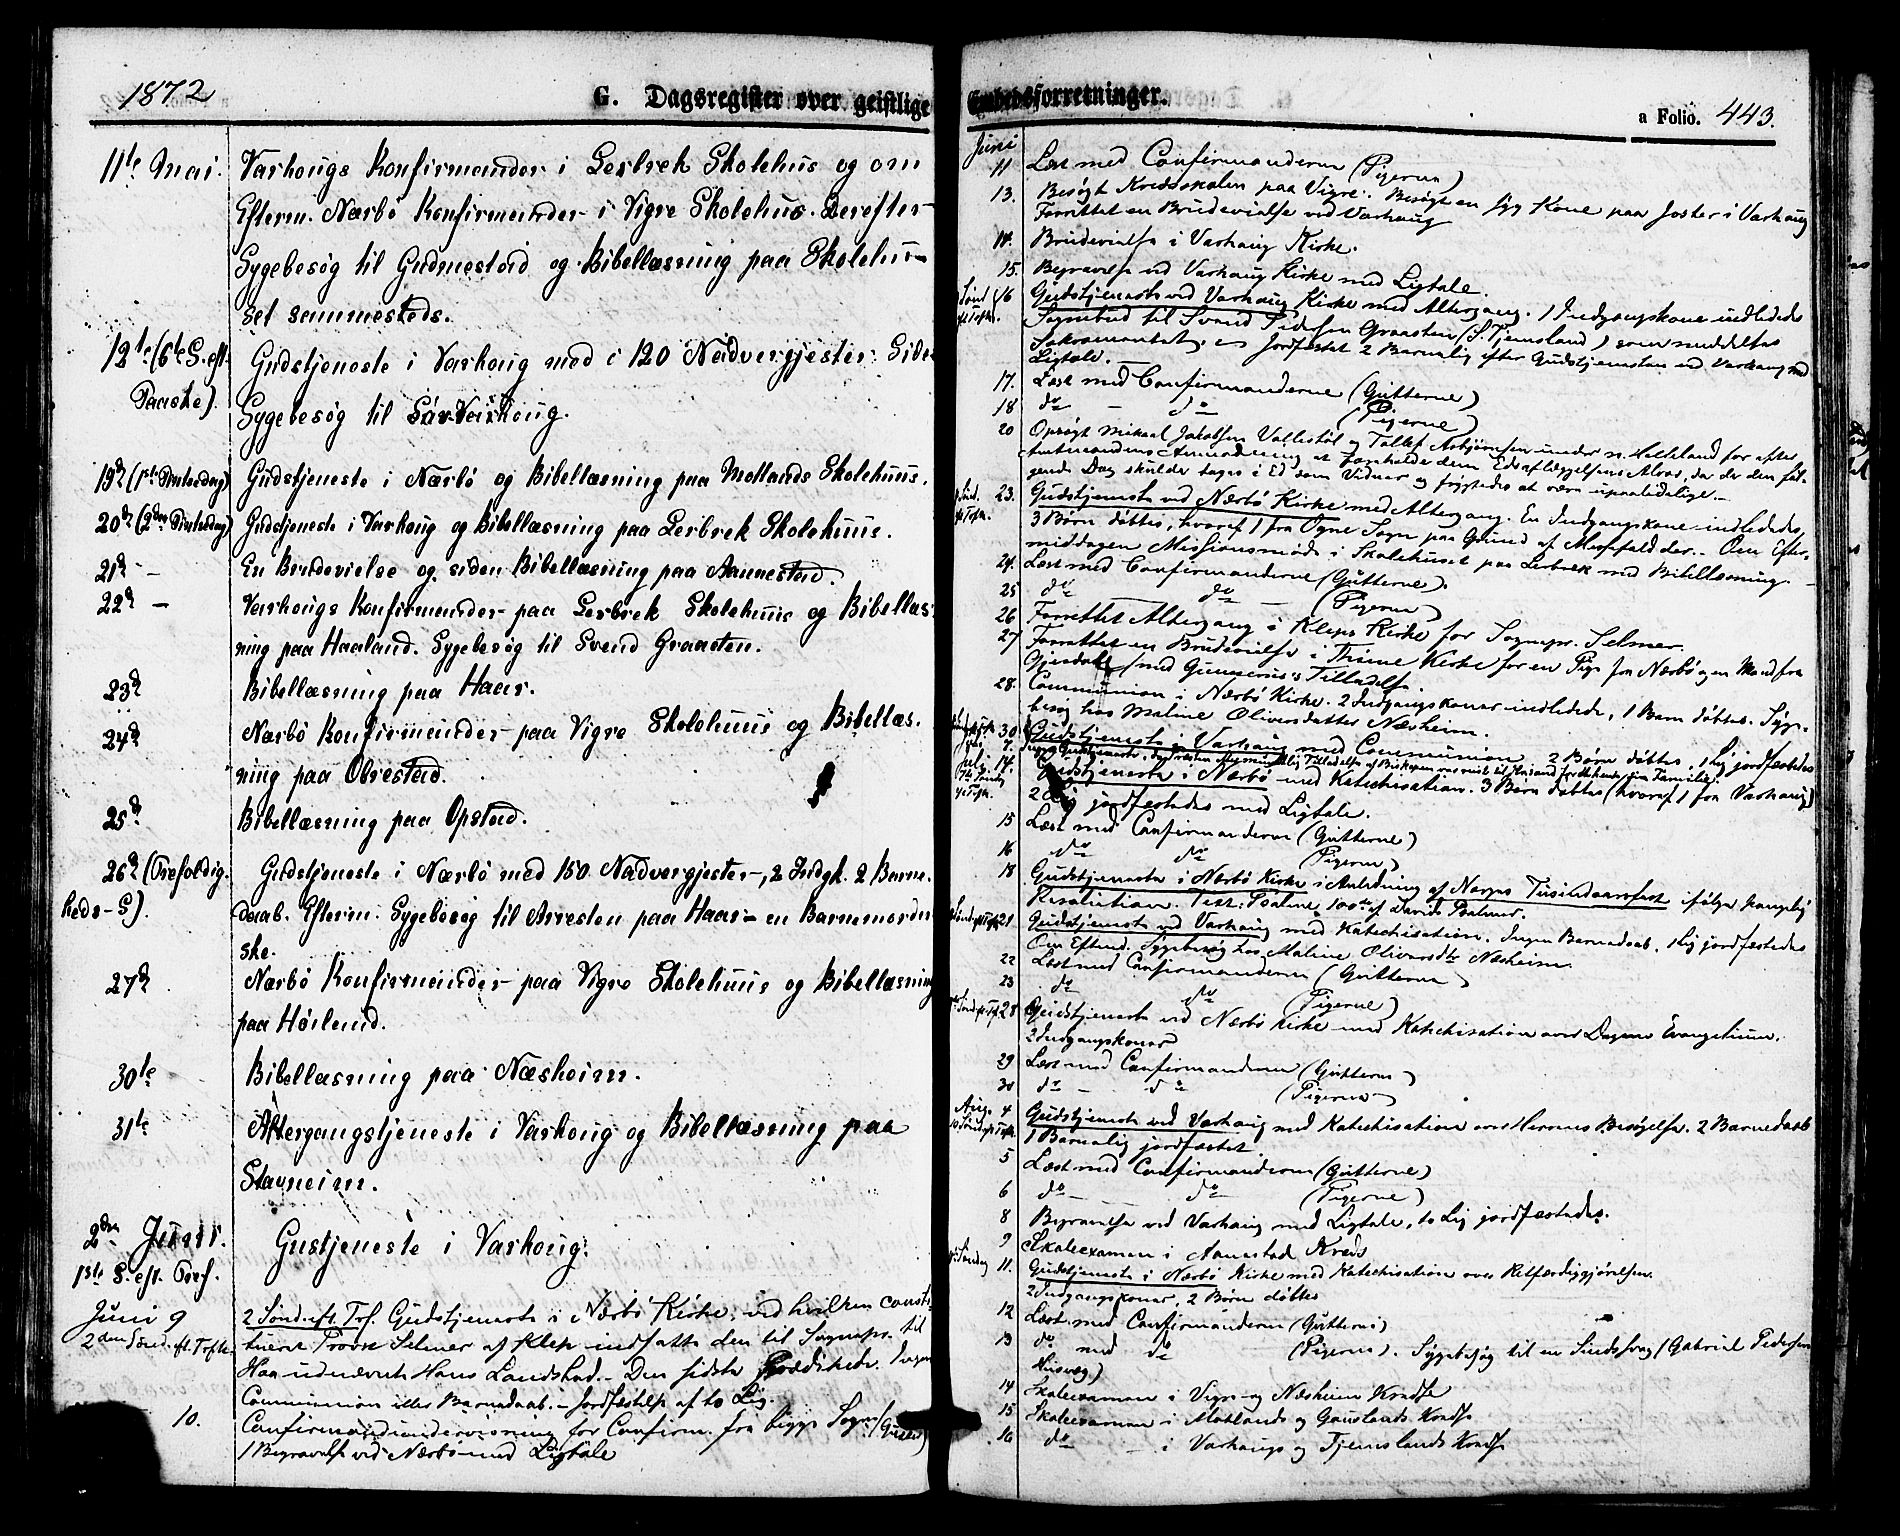 1872
G. Dagsregister over geistlige
11te Mai. Varhougs Konfirmander i Lerbrek Skolehus og om
Efterm. Nærbö Konfirmander i Vigre Skolehus. Derefter
Sygebesög til Gudmestad og Bibellæsning paa Skolehu-
set sammesteds.
12te (6te S. eft. Paaske). Gudstjeneste i Varhoug med i 120 Nadvergjester. Siden
Sygebesög til Sör Varhoug.
19de (1ste Pintsedag) Gudstjeneste i Nærbö og Bibellæsning paa Motlands Skolehuus.
20de (2den Pintsedag) Gudstjeneste i Varhoug og Bibellæsning paa Lerbrek Skolehuus.
21de – En Brudevielse og siden Bibellæsning paa Aannestad.
22de – Varhougs Konfirmander paa Lerbrek Skolehuus og Bibellæs-
ning paa Haaland. Sygebesög til Svend Graasten.
23de Bibellæsning paa Haar.
24de Nærbö Konfirmander paa Vigre Skolehuus og Bibellæs-
ning paa Obrestad.
25de Bibellæsning paa Opstad.
26de (Trefoldig- Gudstjeneste i Nærbö med 150 Nadvergjester, 2 Indgk. 2 Barne-
heds-S). daab. Efterm. Sygebesög til Arresten paa Haar – en Barnemorder-
ske.
27de Nærbö Konfirmander paa Vigre Skolehuus og Bibellæsning
paa Höiland.
30te Bibellæsning paa Næsheim.
31te Altergangstjeneste i Varhoug og Bibellæsning paa
Stavneim.
2den Juni. Gustjeneste i Varhoug.
1ste S. eft. Tref.
Juni 9 2 Sönd. eft. Tref. Gudstjeneste i Nærbö Kirke, ved hvilken consti-
2den Sönd. eft. Trefh. tueret Provst Selmer af Klep indsatte den til Sognepr. til
Haa udnævnte Hans Landstad. – Den sidste prædikede. Ingen
Communion eller Barnedaab. – Jordfæstelse af to Lig.
10. Confirmandundervisning for Confirm. fra begge Sogne (Gutter)
1 Begravelse ved Nærbö med Ligtale
Embedsforretninger.
a Folio. 443.
Juni
11 Læst med Confirmanderne (Pigerne)
13. Besögt Kredsskolen paa Vigre. Besögt en syg Kone paa Joster i Varhaug
Forrettet en Brudevielse ved Varhaug
14. Brudevielse i Varhaug Kirke.
15. Begravelse ved Varhaug Kirke med Ligtale.
16 Gudstjeneste ved Varhaug Kirke med Altergang. 1 Indgangskone indledede
Sognebud til Svend Pedersen Graasten (S. Tjemsland) som meddeltes
Sakramentet, og Jordfæstet 2 Barnelig efter Gudstjenesten ved Varhaug med
Ligtale.
17. Læst med Confirmanderne (Gutterne)
18 do – do (Pigerne)
20 Opsögt Mikael Jakobsen Vollestöl og Tollef Asbjörnsen under n. Hølland for efter
Amtmandens Anmodning at foreholde dem Edsaflæggelsens Alvor, da de den föl-
gende Dag skulde tages i Ed som Vidner og frygtedes at være upaalidelige. –
23. Gudstjeneste ved Nærbö Kirke med Altergang. En Indgangskone indledede,
3 Börn döbtes, hvoraf 1 fra Ogne Sogn paa Grund af Messefald der. – Om Efter-
middagen Missionsmöde i Skolehuset paa Lerbrek med Bibellæsning. –
24. Læst med Confirmanderne (Gutterne).
25 do – do – (Pigerne)
26 Forrettet Altergang i Kleps Kirke for Sognepr. Selmer.
27 Forrettet en Brudevielse i Thime Kirke for en Pige fra Nærbö og en Mand fra
Gjesdal (med Gunnerius's Tilladelse
28. Communion i Nærbö Kirke. 2 Indgangskoner indledede, 1 Barn döbtes. Syge-
besög hos Maline Oliversdatter Næsheim.
30 Gudstjeneste i Varhaug med Communion 2 Börn döbtes, 1 Lig jordfæstedes
7. Ingen Gudstjeneste, da Præsten efter mundtlig Tilladelse af Biskopen var reist til Krsand for at hente sin Familie.
Juli 14. Gudstjeneste i Nærbö med Katechisation. 3 Börn döbtes (hvoraf 1 fra Varhaug)
2 Lig jordfæstedes med Ligtale.
15 Læst med Confirmanderne (Gutterne)
16 do do (Pigerne)
18 Gudstjeneste i Nærbö Kirke i Anledning af Norges Tusindaarsfest ifölge kongelig
Resolution. Text: Psalme 100de af Davids Psalmer.
21 Gudstjeneste ved Varhaug med Katechisation. Ingen Barnedaab, 1 Lig jordfæstedes
Om Efterm. Sygebesög hos Maline Oliversdtr Næsheim.
22 Læst med Confirmanderne (Gutterne)
23 do do (Pigerne)
28 Gudstjeneste ved Nærbö Kirke med Katechisation over Dagens Evangelium.
2 Indgangskoner
29 Læst med Confirmanderne (Gutterne)
30 do – do (Pigerne)
Aug. 4 Gudstjeneste ved Varhaug med Katechisation over Herrens Besögelse. 2 Barnedaab
1 Barnelig jordfæstet.
5 Læst med Confirmanderne (Gutterne)
6 do – do (Pigerne)
8 Begravelse ved Varhaug med Ligtale, to Lig jordfæstedes.
9 Skoleexamen i Aanestad Kreds
11. Gudstjeneste i Nærbö Kirke med Katechisation over Retfærdiggjörelsen.
2 Indgangskoner, 2 Börn döbtes
12 Læst med Confirmanderne (Gutterne)
13 do med do (Pigerne). Sygebesög til en Sindssvag (Gabriel Pedersen
Husvæg)
14 Skoleexamen i Vigre og Næsheim Kredse
15 Skoleexamen i Motlands og Gauslands Kredse
16 do – i Varhaugs og Tjemslands Kredse